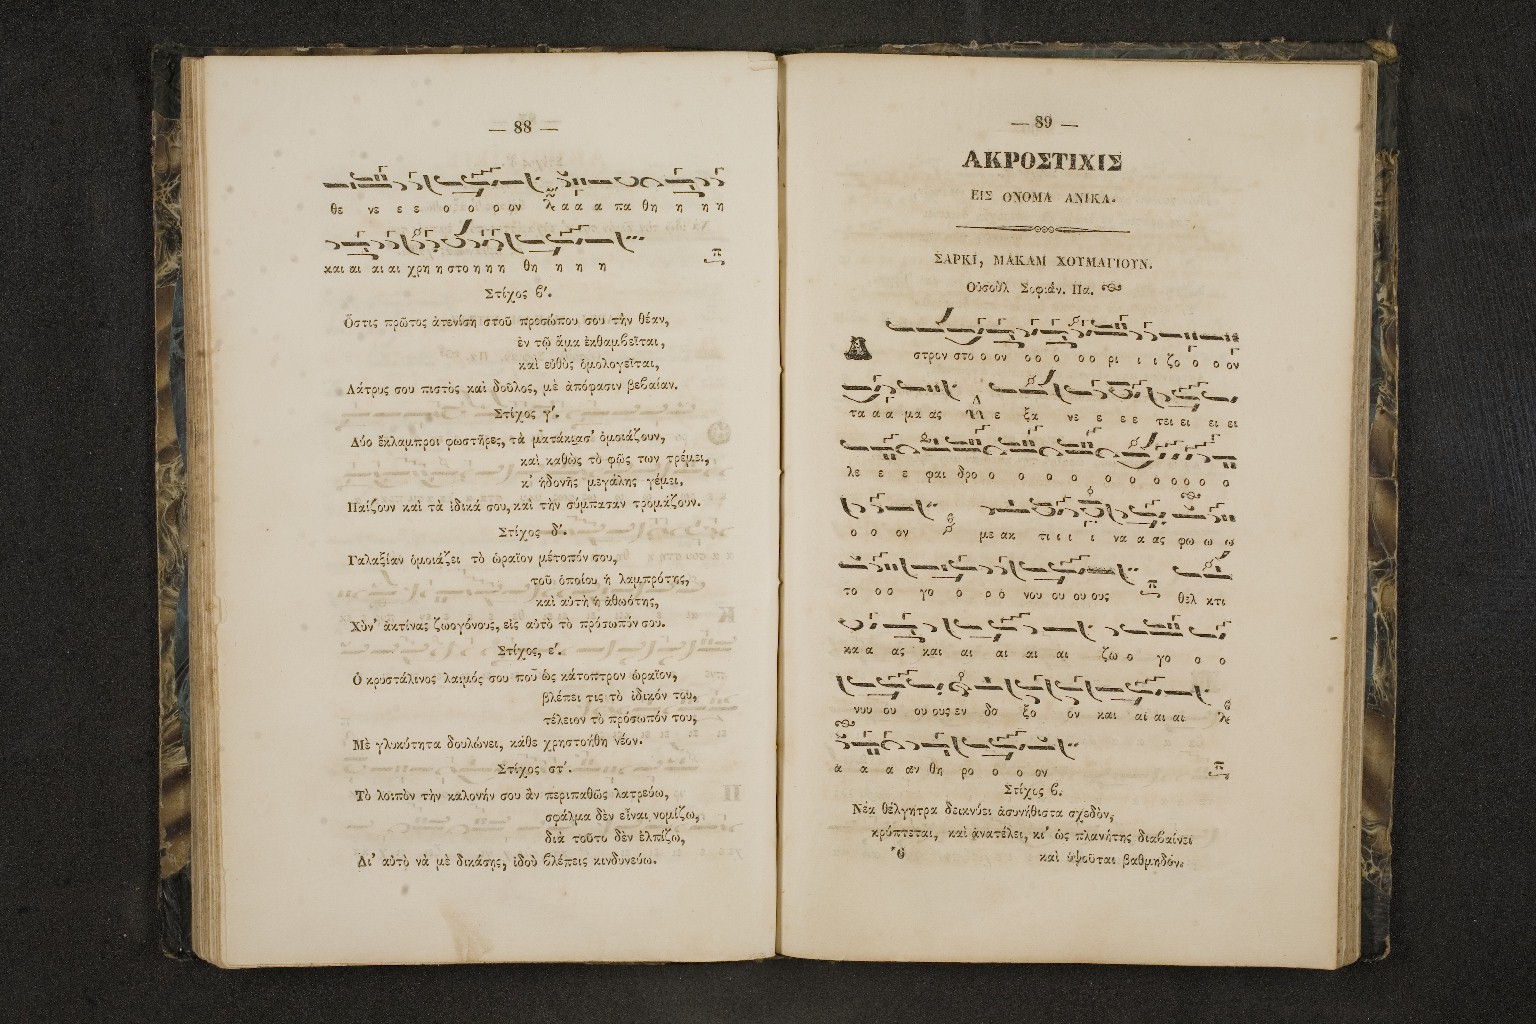 — 88 —
θε νε ε ε ο ο ο ον λ α ά α πα θη η η η
και αι αι αι χρη η στο η η η θη η η η
Στίχος ϐ'.
Ὅστις πρῶτος ἀτενίσῃ στοῦ προσώπου σου τὴν θέαν,
ἐν τῷ ἅμα ἐκθαμβεῖται,
καὶ εὐθὺς ὁμολογεῖται,
Λάτρυς σου πιστὸς καὶ δοῦλος, μὲ ἀπόφασιν βεβαίαν.
Στίχος γ'.
Δύο ἔκλαμπροι φωστῆρες, τὰ ματάκιασ' ὁμοιάζουν,
καὶ καθὼς τὸ φῶς των τρέμει,
κ' ἡδονῆς μεγάλης γέμει,
Παίζουν καὶ τὰ ἰδικά σου, καὶ τὴν σύμπασαν τρομάζουν.
Στίχος δ'.
Γαλαξίαν ὁμοιάζει τὸ ὡραῖον μέτοπόν σου,
τοῦ ὁποίου ἡ λαμπρότης,
καὶ αὐτὴ ἡ ἀθωότης,
Χύν' ἀκτίνας ζωογόνους, εἰς αὐτὸ τὸ πρόσωπόν σου.
Στίχος, ε'.
Ὁ κρυστάλινος λαιμός σου ποῦ ὡς κάτοπτρον ὡραῖον,
βλέπει τις τὸ ἰδικόν του,
τέλειον τὸ πρόσωπόν του,
Μὲ γλυκύτητα δουλώνει, κάθε χρηστοήθη νέον.
Στίχος στ'.
Τὸ λοιπὸν τὴν καλονήν σου ἂν περιπαθῶς λατρεύω,
σφάλμα δὲν εἶναι νομίζω,
διὰ τοῦτο δὲν ἐλπίζω,
Δι' αὐτὸ νὰ μὲ δικάσῃς, ἰδοὺ βλέπεις κινδυνεύω.
— 89 —
ΑΚΡΟΣΤΙΧΙΣ
ΕΙΣ ΟΝΟΜΑ ΑΝΙΚΑ.
ΣΑΡΚΙ, ΜΑΚΑΜ ΧΟΥΜΑΓΙΟΥΝ.
Οὐσοὺλ Σοφιάν. Πα.
Α στρον στο ο ον ο ο ο ο ο ρι ι ι ζο ο ο όν
τα α ά μα ας Ν ε ξα νε ε ε ε τει ει ει ει
λε ε ε φαι δρο ο ο ο ο ο ο ο ο ο ο ο
ο ο ον με ακ τι ι ι ι να α ας φω ω ω
το ο ο γο ο ρό νου ου ου ους θελ κτι
κα α ας και αι αι αι αι ζω ο γο ο ο
νου ου ου ους εν δο ξο ον και αι αι αι
α α α αν θη ρο ο ο ον
Στίχος ϐ.
Νέα θέλγητρα δεικνύει ἀσυνήθιστα σχεδὸν,
κρύπτεται, καὶ ἀνατέλει, κι' ὡς πλανήτης διαβαίνει
καὶ ὑψοῦται βαθμηδόν.